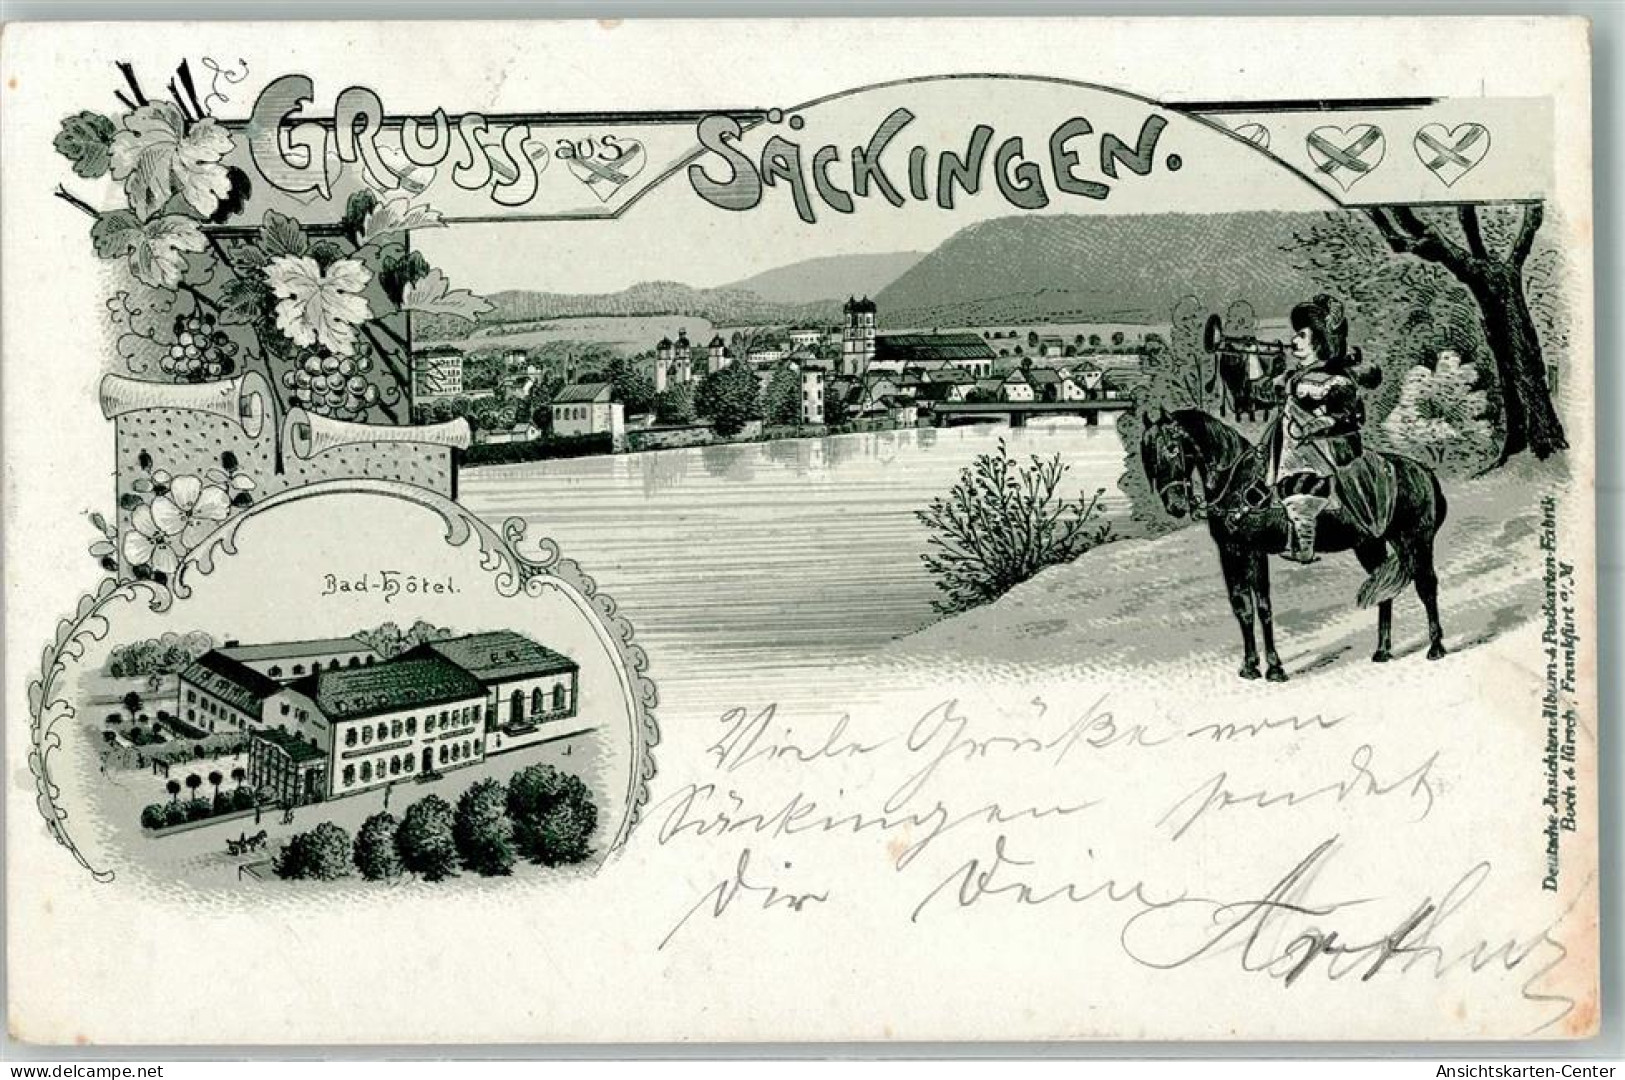 GRUSS aus SÄCKINGEN.
Bad-Hôtel.
Viele Grüße von
Säckingen sendet
Dir Dein Arthur
Deutsche Ansichtenalbum- & Postkarten-Fabrik
Frankfurt a/M
Ansichtskarten-Center